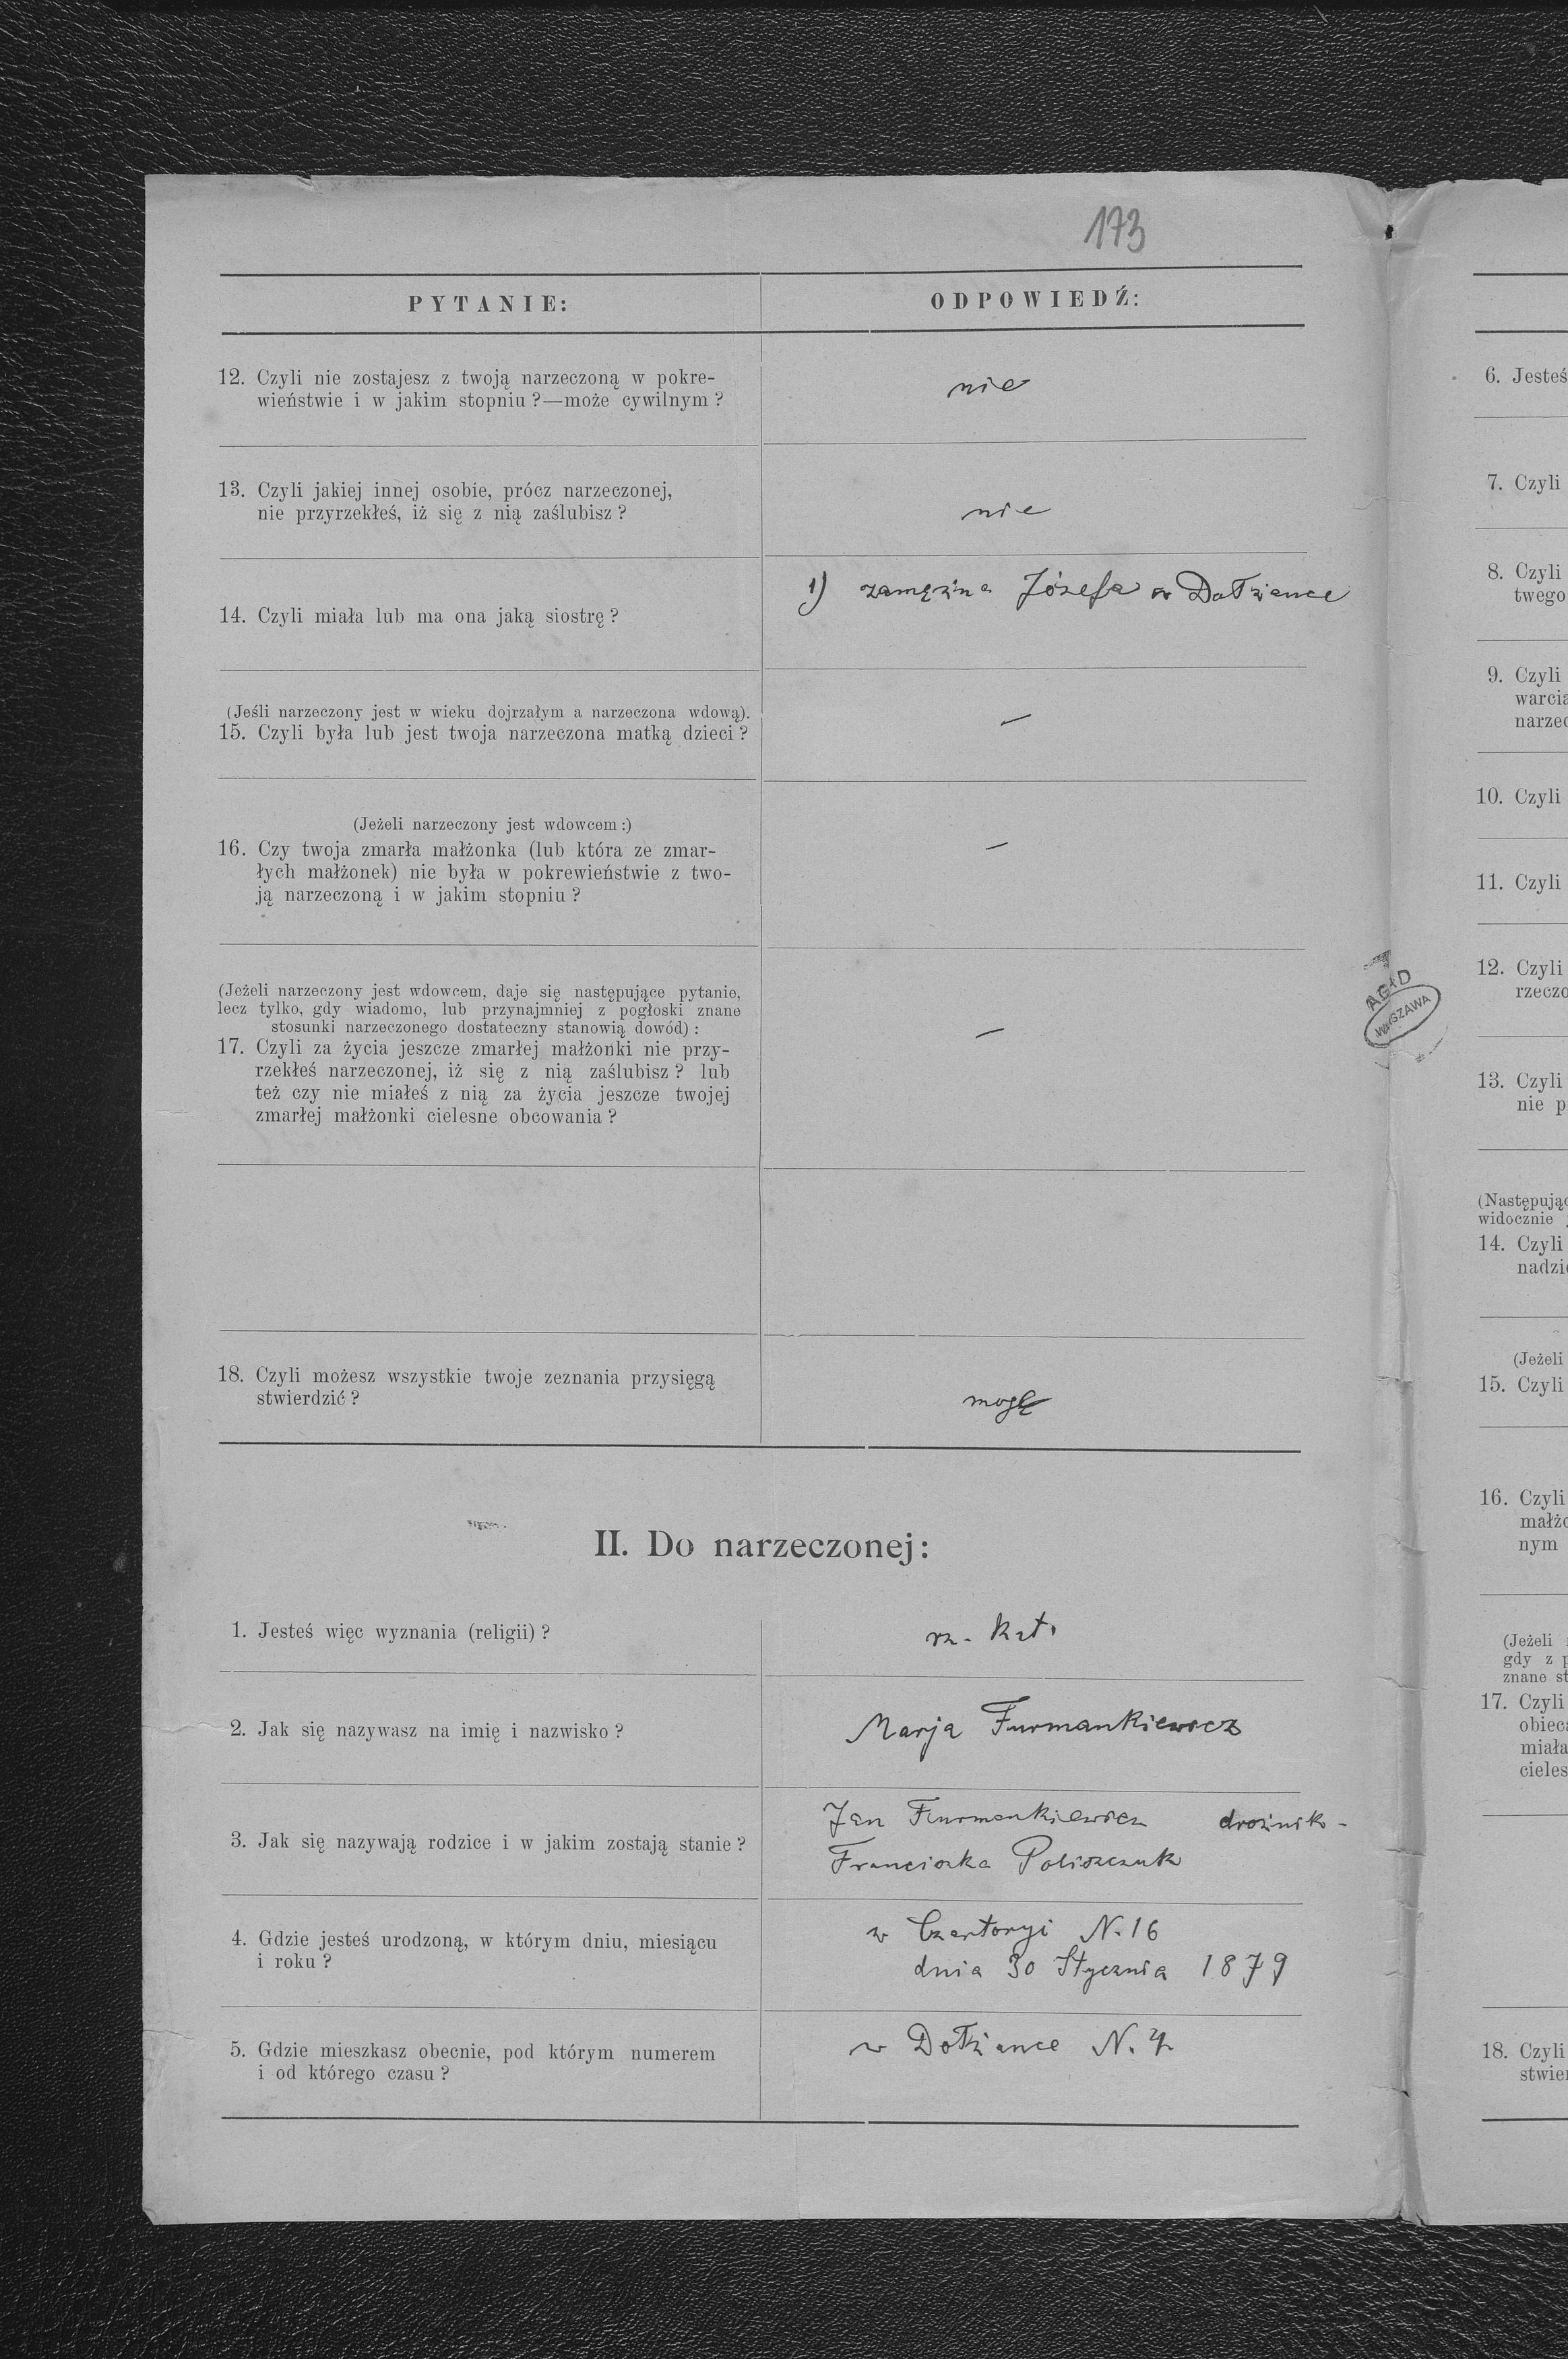 173
PYTANIE:
ODPOWIEDŹ:
12. Czyli nie zostajesz z twoją narzeczoną w pokre-
wieństwie i w jakim stopniu?—może cywilnym?
nie
13. Czyli jakiej innej osobie, prócz narzeczonej,
nie przyrzekłeś, iż się z nią zaślubisz?
nie
14. Czyli miała lub ma ona jaką siostrę?
1) zamężna Józefa w Dołżance
(Jeśli narzeczony jest w wieku dojrzałym a narzeczona wdową).
15. Czyli była lub jest twoja narzeczona matką dzieci?
—
(Jeżeli narzeczony jest wdowcem:)
16. Czy twoja zmarła małżonka (lub która ze zmar-
łych małżonek) nie była w pokrewieństwie z two-
ją narzeczoną i w jakim stopniu?
—
(Jeżeli narzeczony jest wdowcem, daje się następujące pytanie,
lecz tylko, gdy wiadomo, lub przynajmniej z pogłoski znane
stosunki narzeczonego dostateczny stanowią dowód):
17. Czyli za życia jeszcze zmarłej małżonki nie przy-
rzekłeś narzeczonej, iż się z nią zaślubisz? lub
też czy nie miałeś z nią za życia jeszcze twojej
zmarłej małżonki cielesne obcowania?
—
18. Czyli możesz wszystkie twoje zeznania przysięgą
stwierdzić?
mogę
II. Do narzeczonej:
1. Jesteś więc wyznania (religii)?
rz. kat.
2. Jak się nazywasz na imię i nazwisko?
Marja Furmankiewicz
3. Jak się nazywają rodzice i w jakim zostają stanie?
Jan Furmankiewicz drożnik-
Franciszka Poliszczuk
4. Gdzie jesteś urodzoną, w którym dniu, miesiącu
i roku?
w Czartoryi N. 16
dnia 30 Stycznia 1879
5. Gdzie mieszkasz obecnie, pod którym numerem
i od którego czasu?
w Dołżance N.
AGAD
WARSZAWA
6. Jesteś
7. Czyli
8. Czyli
twego
9. Czyli
warcia
narzec
10. Czyli
11. Czyli
12. Czyli
rzeczo
13. Czyli
nie p
(Następując
widocznie
14. Czyli
nadzie
(Jeżeli
15. Czyli
16. Czyli
małżo
nym
(Jeżeli
gdy z p
znane st
17. Czyli
obieca
miała
cieles
18. Czyli
stwier